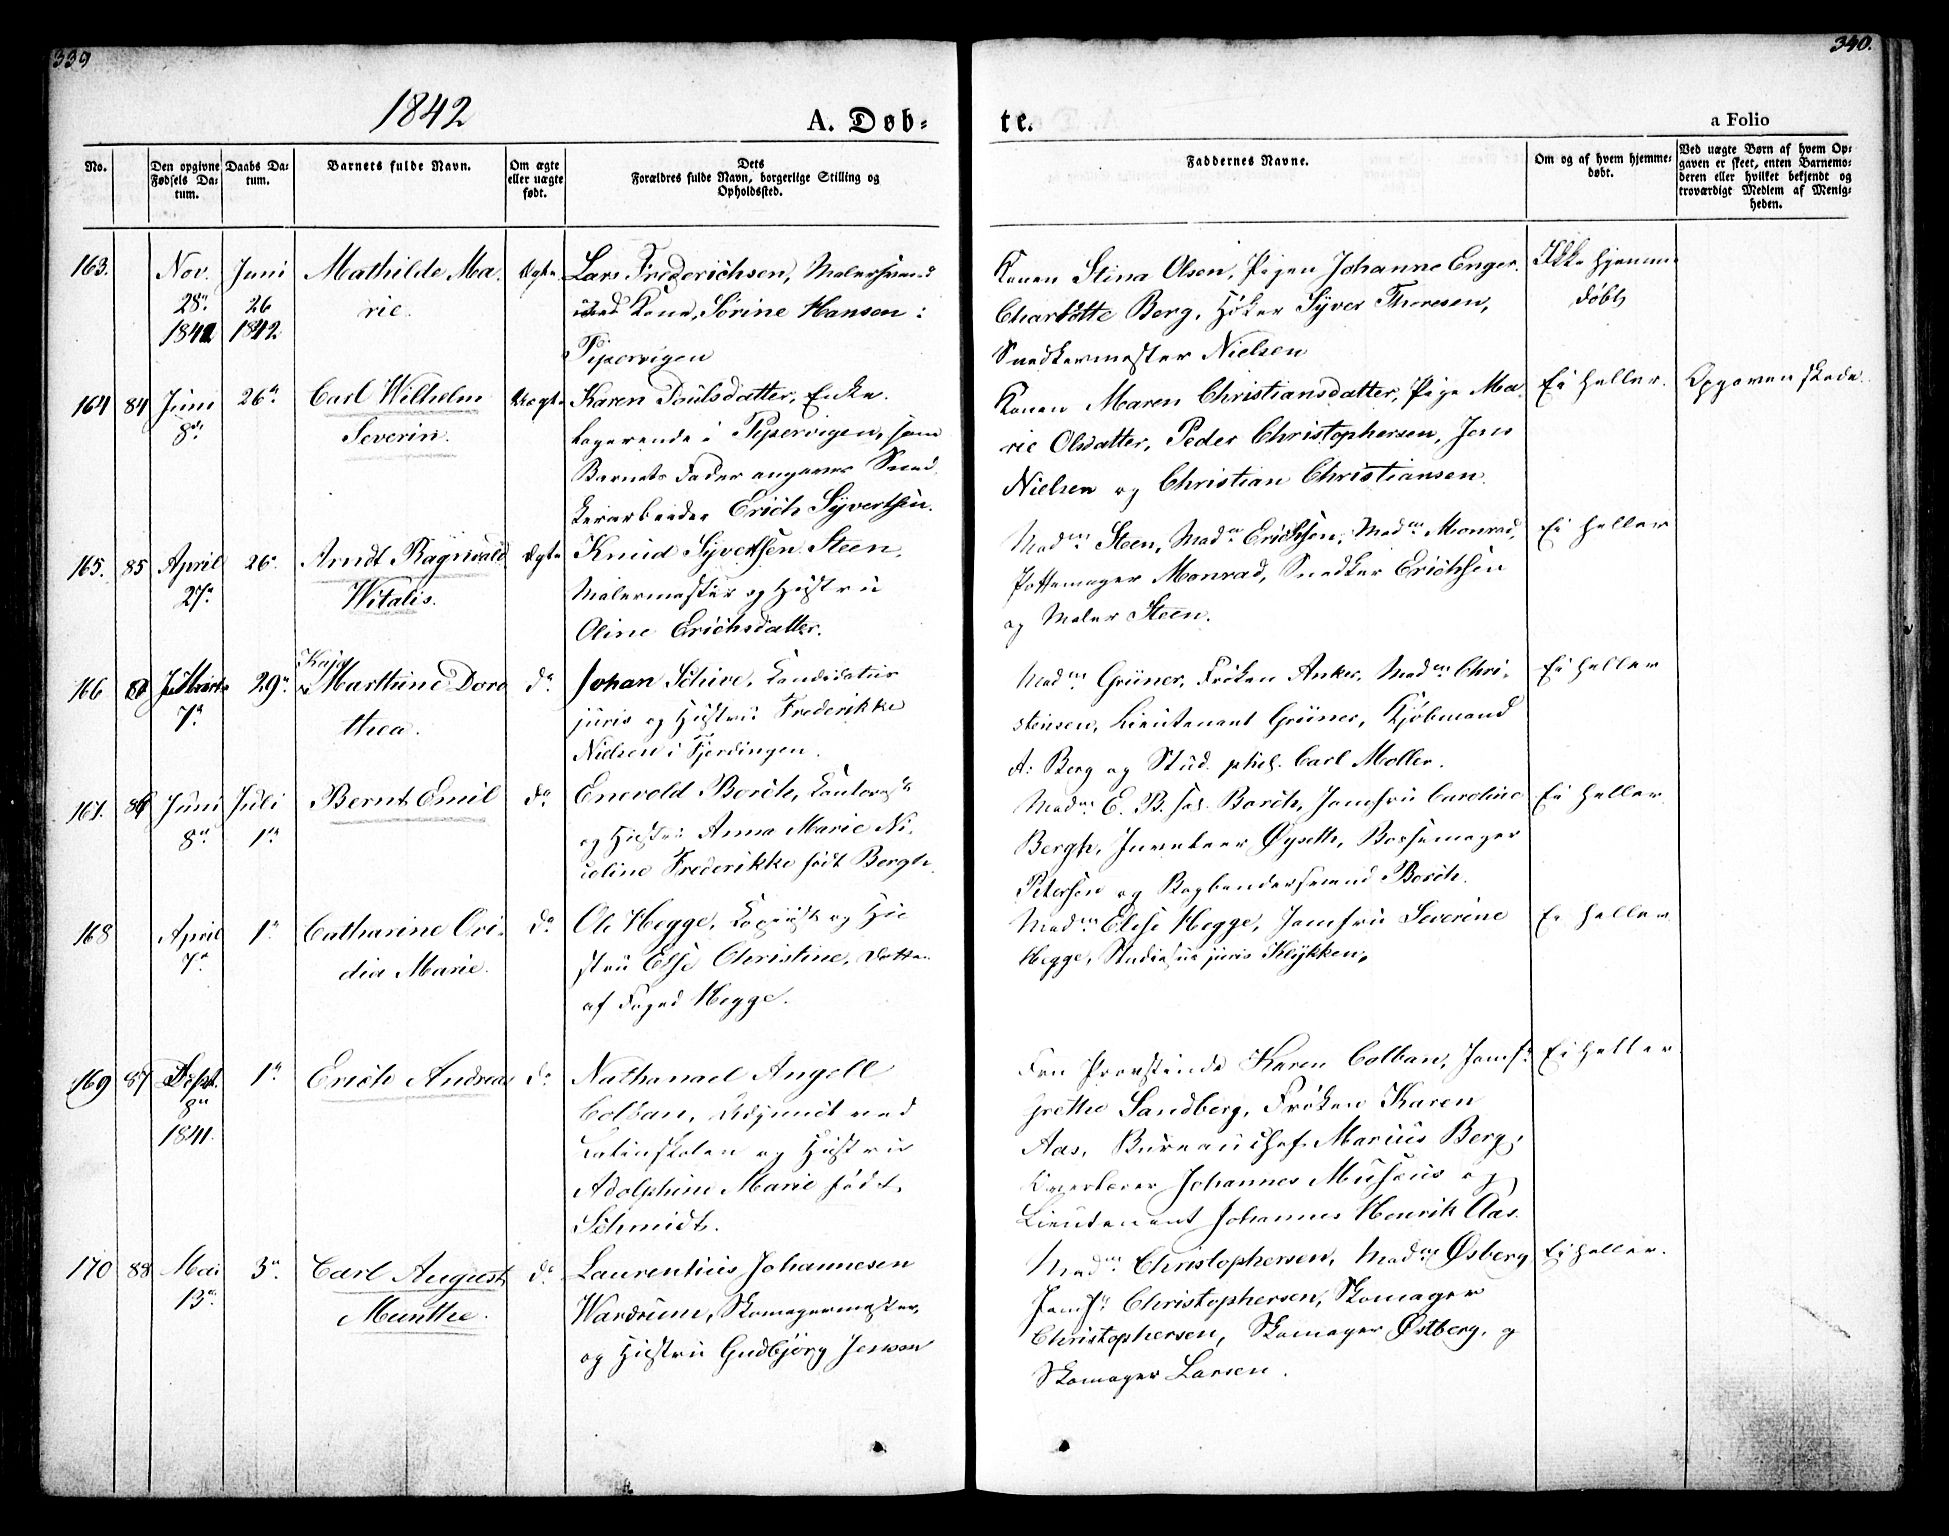 339
340.
1842
A. Døb-
te.
a Folio
No.
Den opgivne Fødsels Datum.
Daabs Datum.
Barnets fulde Navn.
Om ægte eller uægte født.
Dets Forældres fulde Navn, borgerlige Stilling og Opholdssted.
Faddernes Navne.
Om og af hvem hjemmedøbt.
Ved uægte Børn af hvem Opgaven er skeet, enten Barnemoderen eller hvilket bekjendt og troværdigt Medlem af Menigheden.
163.
Nov.
28de
1841
Juni
26
1842
Mathilde Ma-
rie.
Ægte
Lars Frederichsen, Malersvend
med Kone, Sørine Hansen:
Pipervigen
Konen Stina Olsen, Pigen Johanne Enger
Charlotte Berg, Høker Syver Thoresen,
Snedkermester Nielsen
Ikke hjemme
døbt
164
84
Juni
8de
26de
Carl Wilhelm
Severin.
Uægte
Karen Poulsdatter, Enke.
logerende i Pipervigen, som
Barnets Fader angives Sned
kerarbeider Erich Syvertsen.
Konen Maren Christiansdatter, Pige Ma
rie Olsdatter, Peder Christophersen, Jens
Nielsen og Christian Christiansen.
Ei heller.
Opgaven skede
165.
85
April
27de
26.
Arndt Ragnvald
Witalis.
Ægte
Knud Syvertsen Steen,
Malermester og Hustru
Oline Erichsdatter.
Madm Steen, Madm Erichsen, Madm Monrad,
Pottemager Monrad, Snedker Erichsen
og Maler Steen.
Ei heller
166
Marts
7de
29de
Kaja
Marthine Doro
thea.
do
Johan Schive, Kandidatus
juris og Hustru Frederikke
Nielsen i Fjerdingen.
Madm Grüner, Frøken Anker, Madm Chri-
stensen, Lieutenant Grüner, Kjøbmand
A: Berg og Stud. phil. Carl Moller.
Ei heller
167.
86
Juni
8de
Juli
1ste
Bernt Emil
do
Enevold Borch, Kontorist
og Hustru Anna Marie Ni-
coline Frederikke født Bergh.
Madm E. B. Borch, Jomfru Caroline
Bergh, Juveleer Øyseth, Bøssemager
Petersen og Bogbindersvend Borch.
Ei heller
168
April
7de
1ste
Catharine Ovi-
dia Marie.
do
Ole Hegge, Kopiist og Hu
stru Else Christine, Datter
af Foged Hegge.
Madm Elise Hegge, Jomfru Severine
Hegge, Studiosus juris Klykken,
Ei heller
169
87
Sept.
8de
1841.
1ste
Erich Andreas
do
Nathanael Angell
Colban, Adjunct ved
Latinskolen og Hustru
Adolphine Marie født
Schmidt.
Fru Provstinde Karen Colban, Jomf
Grethe Sandberg, Frøken Karen
Aas, Bureauchef Marius Berg,
Overlærer Johannes Musæus og
Lieutenant Johannes Henrik Aas.
Ei heller
170
88
Mai
13de
3de
Carl August
Munthe.
do
Laurentius Johannesen
Wardrum, Skomagermester,
og Hustru Gudbjörg Jensen
Madm Christophersen, Madm Øsberg
Jomf Christophersen, Skomager
Christophersen, Skomager Østberg, og
Skomager Larsen.
Ei heller.